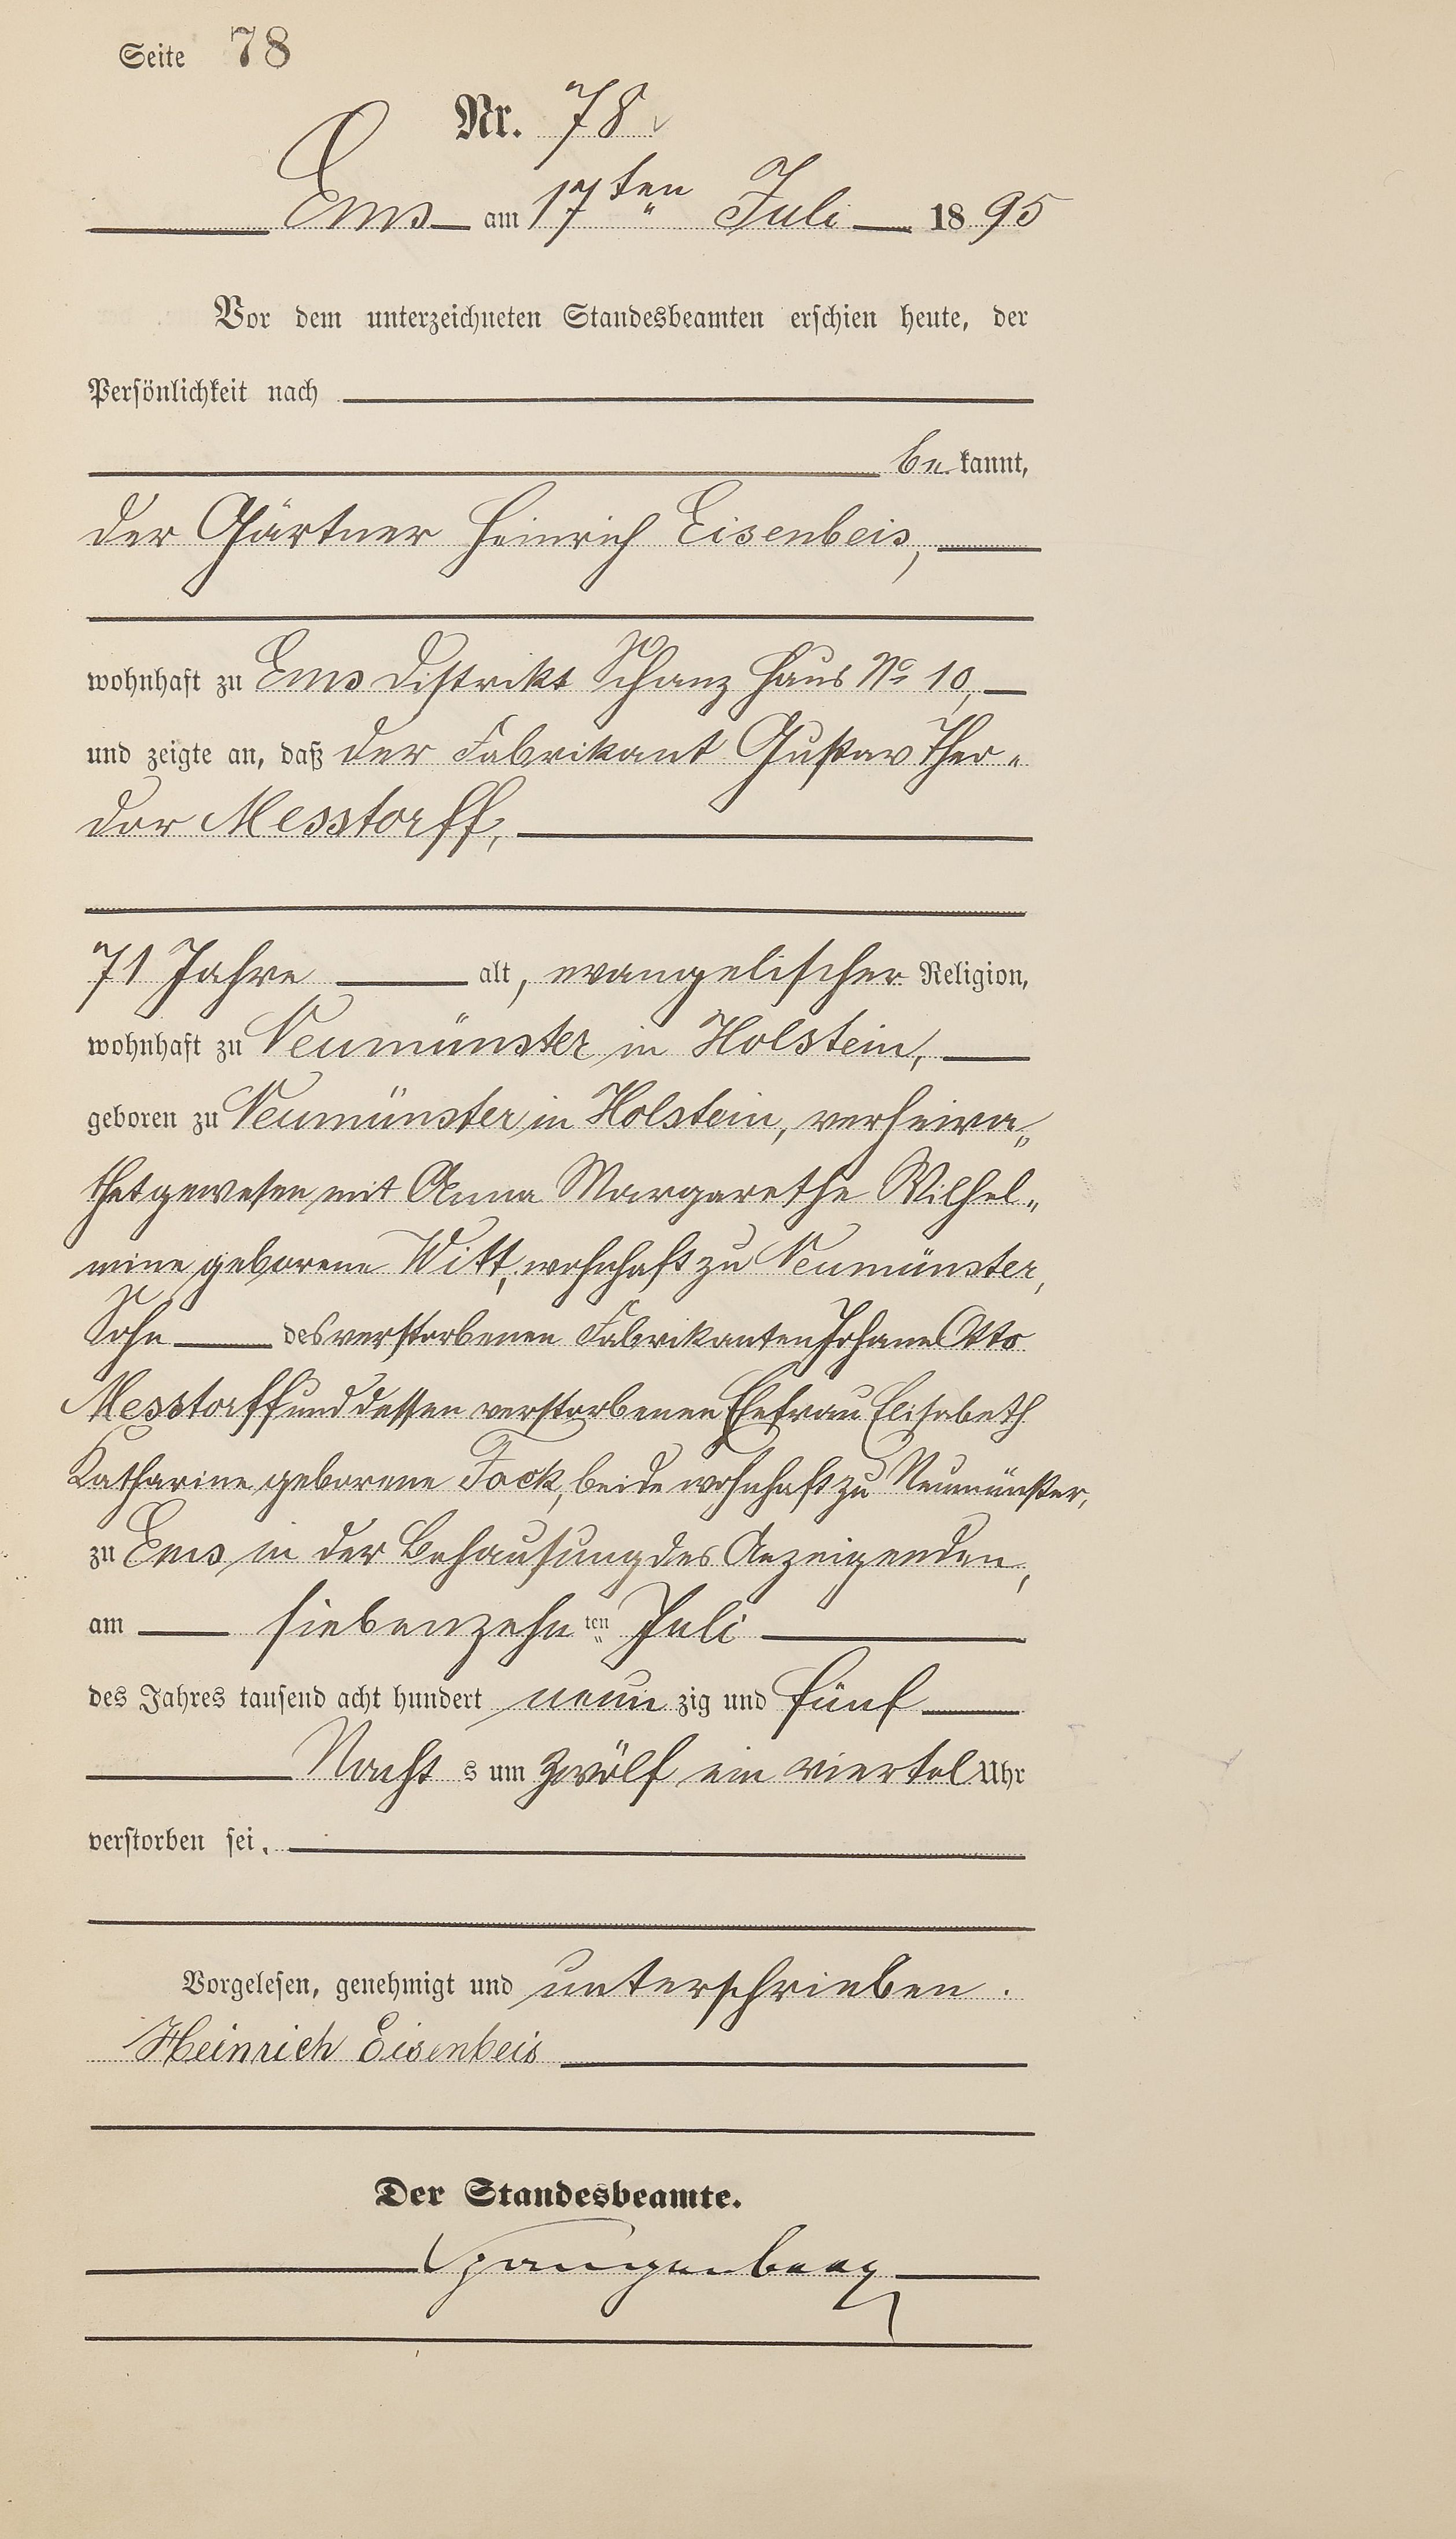 Seite 78
Nr. 78
Ems am 17ten Juli 1895
Vor dem unterzeichneten Standesbeamten erschien heute, der
Persönlichkeit nach
bekannt,
der Gärtner Heinrich Eisenbeis,
wohnhaft zu Ems Distrikt Schanz Haus No 10,
und zeigte an, daß der Fabrikant Gustav Theo-
dor Messtorff,
71 Jahre alt, evangelischer Religion,
wohnhaft zu Neumünster in Holstein,
geboren zu Neumünster in Holstein, verheira-
thet gewesen mit Anna Margarethe Wilhel-
mine geborene Witt, wohnhaft zu Neumünster,
Sohn des verstorbenen Fabrikanten Johann Otto
Messtorff und dessen verstorbenen Ehefrau Elisabeth
Katharine geborene Fock, beide wohnhaft zu Neumünster,
zu Ems in der Behausung des Anzeigenden,
am siebenzehnten Juli
des Jahres tausend acht hundert neunzig und fünf
Nachts um zwölf ein viertel Uhr
verstorben sei.
Vorgelesen, genehmigt und unterschrieben.
Heinrich Eisenbeis
Der Standesbeamte.
Spangenberg